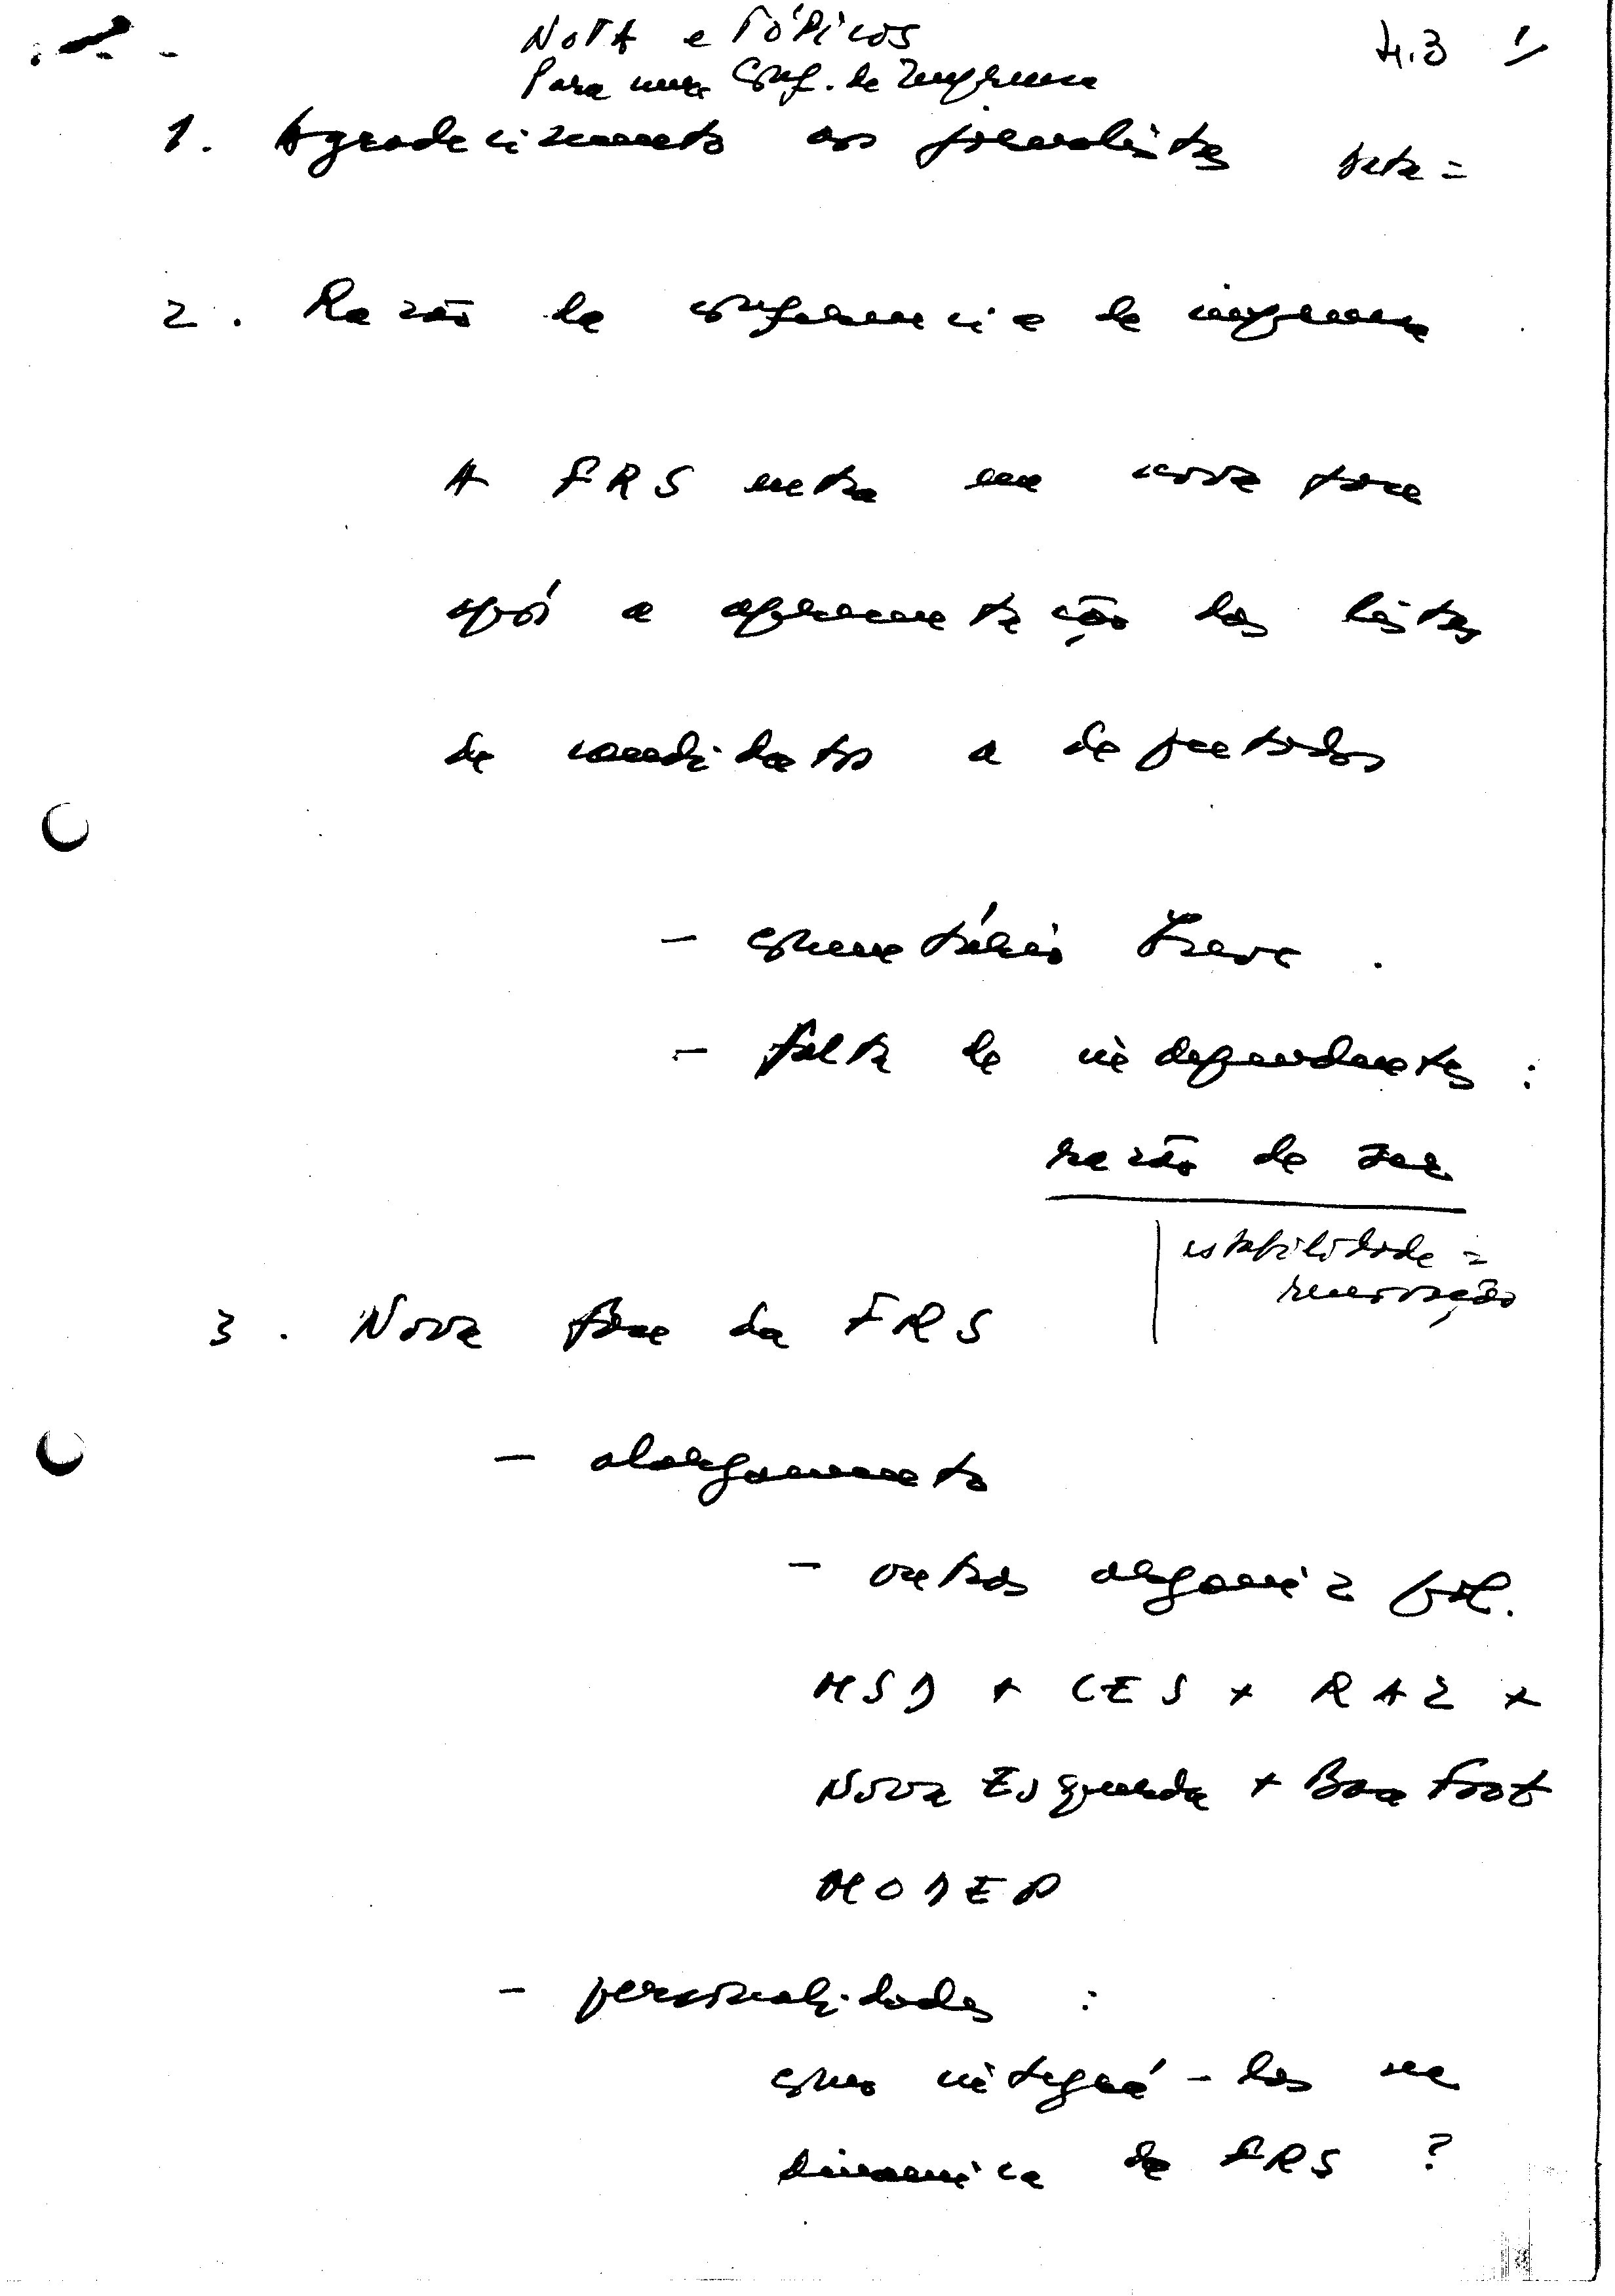 NOTA e TÓPICOS
Para uma Conf. de Imprensa
4.3 1/
1. Agradecimento aos jornalistas
2. Razão da conferencia de imprensa
A FRS entra em nova fase
após a apresentação das listas
de candidatos a deputados
- comentário breve.
- falta de independentes:
razão de ser
estabilidade =
renovação
3. Nova fase da FRS
- alargamento
- outras organiz pol.
MSD + CES + RAZ +
Nova Esquerda + Base Front
MODEP
- personalidades:
como integrá-las na
dinamica da FRS?